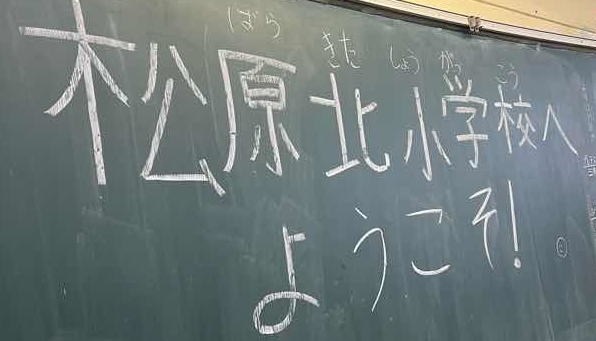 ばら きた しょう がっ こう
松原北小学校へ
ようこそ!